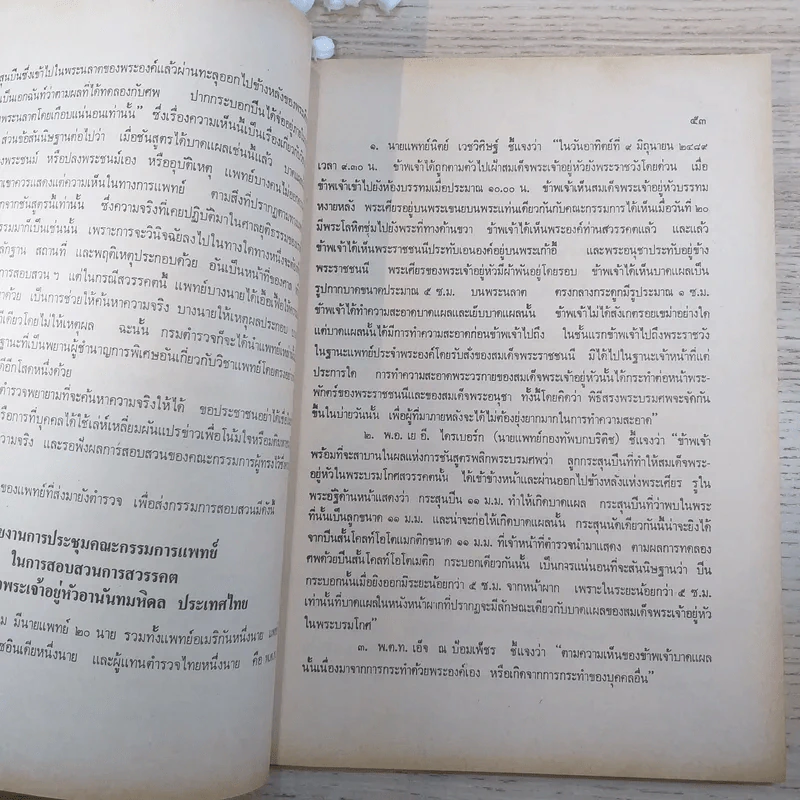 สุนปืนซึ่งเข้าไปในพระนลาตของพระองค์แล้วผ่านทะลุออกไปข้างหลังของพระ
เป็นเอกฉันท์ว่าตามผลที่ได้ทดลองกับศพ ปากกระบอกปืนได้จ่ออยู่
พระนลาตโดยเกือบแน่นอนเท่านั้น” ซึ่งเรื่องความเห็นนี้เป็นเรื่องเกี่ยวกับ
ส่วนข้อสันนิษฐานต่อไปว่า เมื่อชันสูตรได้บาดแผลเช่นนี้แล้ว
พระชนม์ หรือปลงพระชนม์เอง หรืออุบัติเหตุ แพทย์บางคนไม่ออก
เขาควรแสดงแต่ความเห็นในทางการแพทย์ ตามสิ่งที่ปรากฏ
จากชันสูตรนี้เท่านั้น ซึ่งความจริงที่เคยปฏิบัติมาในศาลยุติธรรมของ
ธรรมมาก็เป็นเช่นนั้น เพราะการจะวินิจฉัยลงไปในทางใดทางหนึ่ง
หลักฐาน สถานที่ และพฤติเหตุประกอบด้วย อันเป็นหน้าที่ของศาล
การสอบสวนๆ แต่ในกรณีสวรรคตนี้ แพทย์บางนายได้เอื้อเฟื้อให้ความ
ด้วย เป็นการช่วยให้ค้นหาความจริง บางนายให้เหตุผลประกอบ
เดียวโดยไม่ให้เหตุผล ฉะนั้น กรมตำรวจก็จะได้นำแพทย์
ฐานะที่เป็นพยานผู้ชำนาญการพิเศษอันเกี่ยวกับวิชาแพทย์โดยตรง
อีกโสดหนึ่งด้วย
ตำรวจพยายามที่จะค้นหาความจริงให้ได้ ขอประชาชนอย่าได้เชื่อ
หรือการที่บุคคลได้ใช้เล่ห์เหลี่ยมผันแปรข่าวเพื่อโน้มใจหรือ
ความจริง และรอฟังผลการสอบสวนของคณะกรรมการผู้ทรงไว้ซึ่ง
ของแพทย์ที่ส่งมายังตำรวจ เพื่อส่งกรรมการสอบสวนมีดังนี้
งานการประชุมคณะกรรมการแพทย์
ในการสอบสวนการสวรรคต
พระเจ้าอยู่หัวอานันทมหิดล ประเทศไทย
มีนายแพทย์ ๒๐ นาย รวมทั้งแพทย์อเมริกันหนึ่งนาย
อินเดียหนึ่งนาย และผู้แทนตำรวจไทยหนึ่งนาย คือ
๕๓
๑. นายแพทย์นิตย์ เวชวิศิษฐ์ ชี้แจงว่า “ในวันอาทิตย์ที่ ๙ มิถุนายน ๒๔๘๙
เวลา ๙.๓๐ น. ข้าพเจ้าได้ถูกตามตัวไปเฝ้าสมเด็จพระเจ้าอยู่หัวยังพระราชวังโดยด่วน เมื่อ
ข้าพเจ้าเข้าไปยังห้องบรรทมเมื่อประมาณ ๑๐.๐๐ น. ข้าพเจ้าเห็นสมเด็จพระเจ้าอยู่หัวบรรทม
หงายหลัง พระเศียรอยู่บนพระเขนยบนพระแท่นเดียวกันกับคณะกรรมการได้เห็นเมื่อวันที่ ๒๐
มีพระโลหิตชุ่มไปยังพระที่ทางด้านขวา ข้าพเจ้าได้เห็นพระองค์ท่านสวรรคตแล้ว และแล้ว
ข้าพเจ้าได้เห็นพระราชชนนีประทับเอนองค์อยู่บนพระเก้าอี้ และพระอนุชาประทับอยู่ข้าง
พระราชชนนี พระเศียรของพระเจ้าอยู่หัวมีผ้าพันอยู่โดยรอบ ข้าพเจ้าได้เห็นบาดแผลเป็น
รูปกากบาดขนาดประมาณ ๕ ซ.ม. บนพระนลาต ตรงกลางกระดูกมีรูประมาณ ๑ ซ.ม.
ข้าพเจ้าได้ทำความสะอาดบาดแผลและเย็บบาดแผลนั้น ข้าพเจ้าไม่ได้สังเกตรอยเขม่าอย่างใด
แต่บาดแผลนั้นได้มีการทำความสะอาดก่อนข้าพเจ้าไปถึง ในชั้นแรกข้าพเจ้าไปถึงพระราชวัง
ในฐานะแพทย์ประจำพระองค์โดยรับสั่งของสมเด็จพระราชชนนี มิได้ไปในฐานะเจ้าหน้าที่แต่
ประการใด การทำความสะอาดพระวรกายของสมเด็จพระเจ้าอยู่หัวนั้นได้กระทำต่อหน้าพระ-
พักตร์ของพระราชชนนีและของสมเด็จพระอนุชา ทั้งนี้โดยคิดว่า พิธีสรงพระบรมศพจะจัดกัน
ขึ้นในบ่ายวันนั้น เพื่อผู้ที่มาภายหลังจะได้ไม่ต้องยุ่งยากมากในการทำความสะอาด”
๒. พ.อ. เย อี. ไดรเบอร์ก (นายแพทย์กองทัพบกบริติช) ชี้แจงว่า “ข้าพเจ้า
พร้อมที่จะสาบานในผลแห่งการชันสูตรพลิกพระบรมศพว่า ลูกกระสุนปืนที่ทำให้สมเด็จพระ-
อยู่หัวในพระบรมโกศสวรรคตนั้น ได้เข้าข้างหน้าและผ่านออกไปข้างหลังแห่งพระเศียร รูใน
พระอัฐิด้านหน้าแสดงว่า กระสุนปืน ๑๑ ม.ม. ทำให้เกิดบาดแผล กระสุนปืนที่ว่าพบในพระ
ที่นั้นเป็นลูกขนาด ๑๑ ม.ม. และน่าจะก่อให้เกิดบาดแผลนั้น กระสุนนัดเดียวกันนี้น่าจะยิงได้
จากปืนสั้นโคลท์โอโตแมกติกขนาด ๑๑ ม.ม. ที่เจ้าหน้าที่ตำรวจนำมาแสดง ตามผลการทดลอง
ศพด้วยปืนสั้นโคลท์โอโตเมติก กระบอกเดียวกันนั้น เป็นกจรแน่นอนที่จะสันนิษฐานว่า ปืน
กระบอกนั้นเมื่อยิงออกมีระยะน้อยกว่า ๕ ซ.ม. จากหน้าผาก เพราะในระยะน้อยกว่า ๕ ซ.ม.
เท่านั้นที่บาดแผลในหนังหน้าผากที่ปรากฏจะมีลักษณะเดียวกับบาดแผลของสมเด็จพระเจ้าอยู่หัว
ในพระบรมโกศ”
๓. พ.ต.ท. เอ็จ ณ ป้อมเพ็ชร ชี้แจงว่า “ตามความเห็นของข้าพเจ้าบาดแผล
นั้นเนื่องมาจากการกระทำด้วยพระองค์เอง หรือเกิดจากการกระทำของบุคคลอื่น”